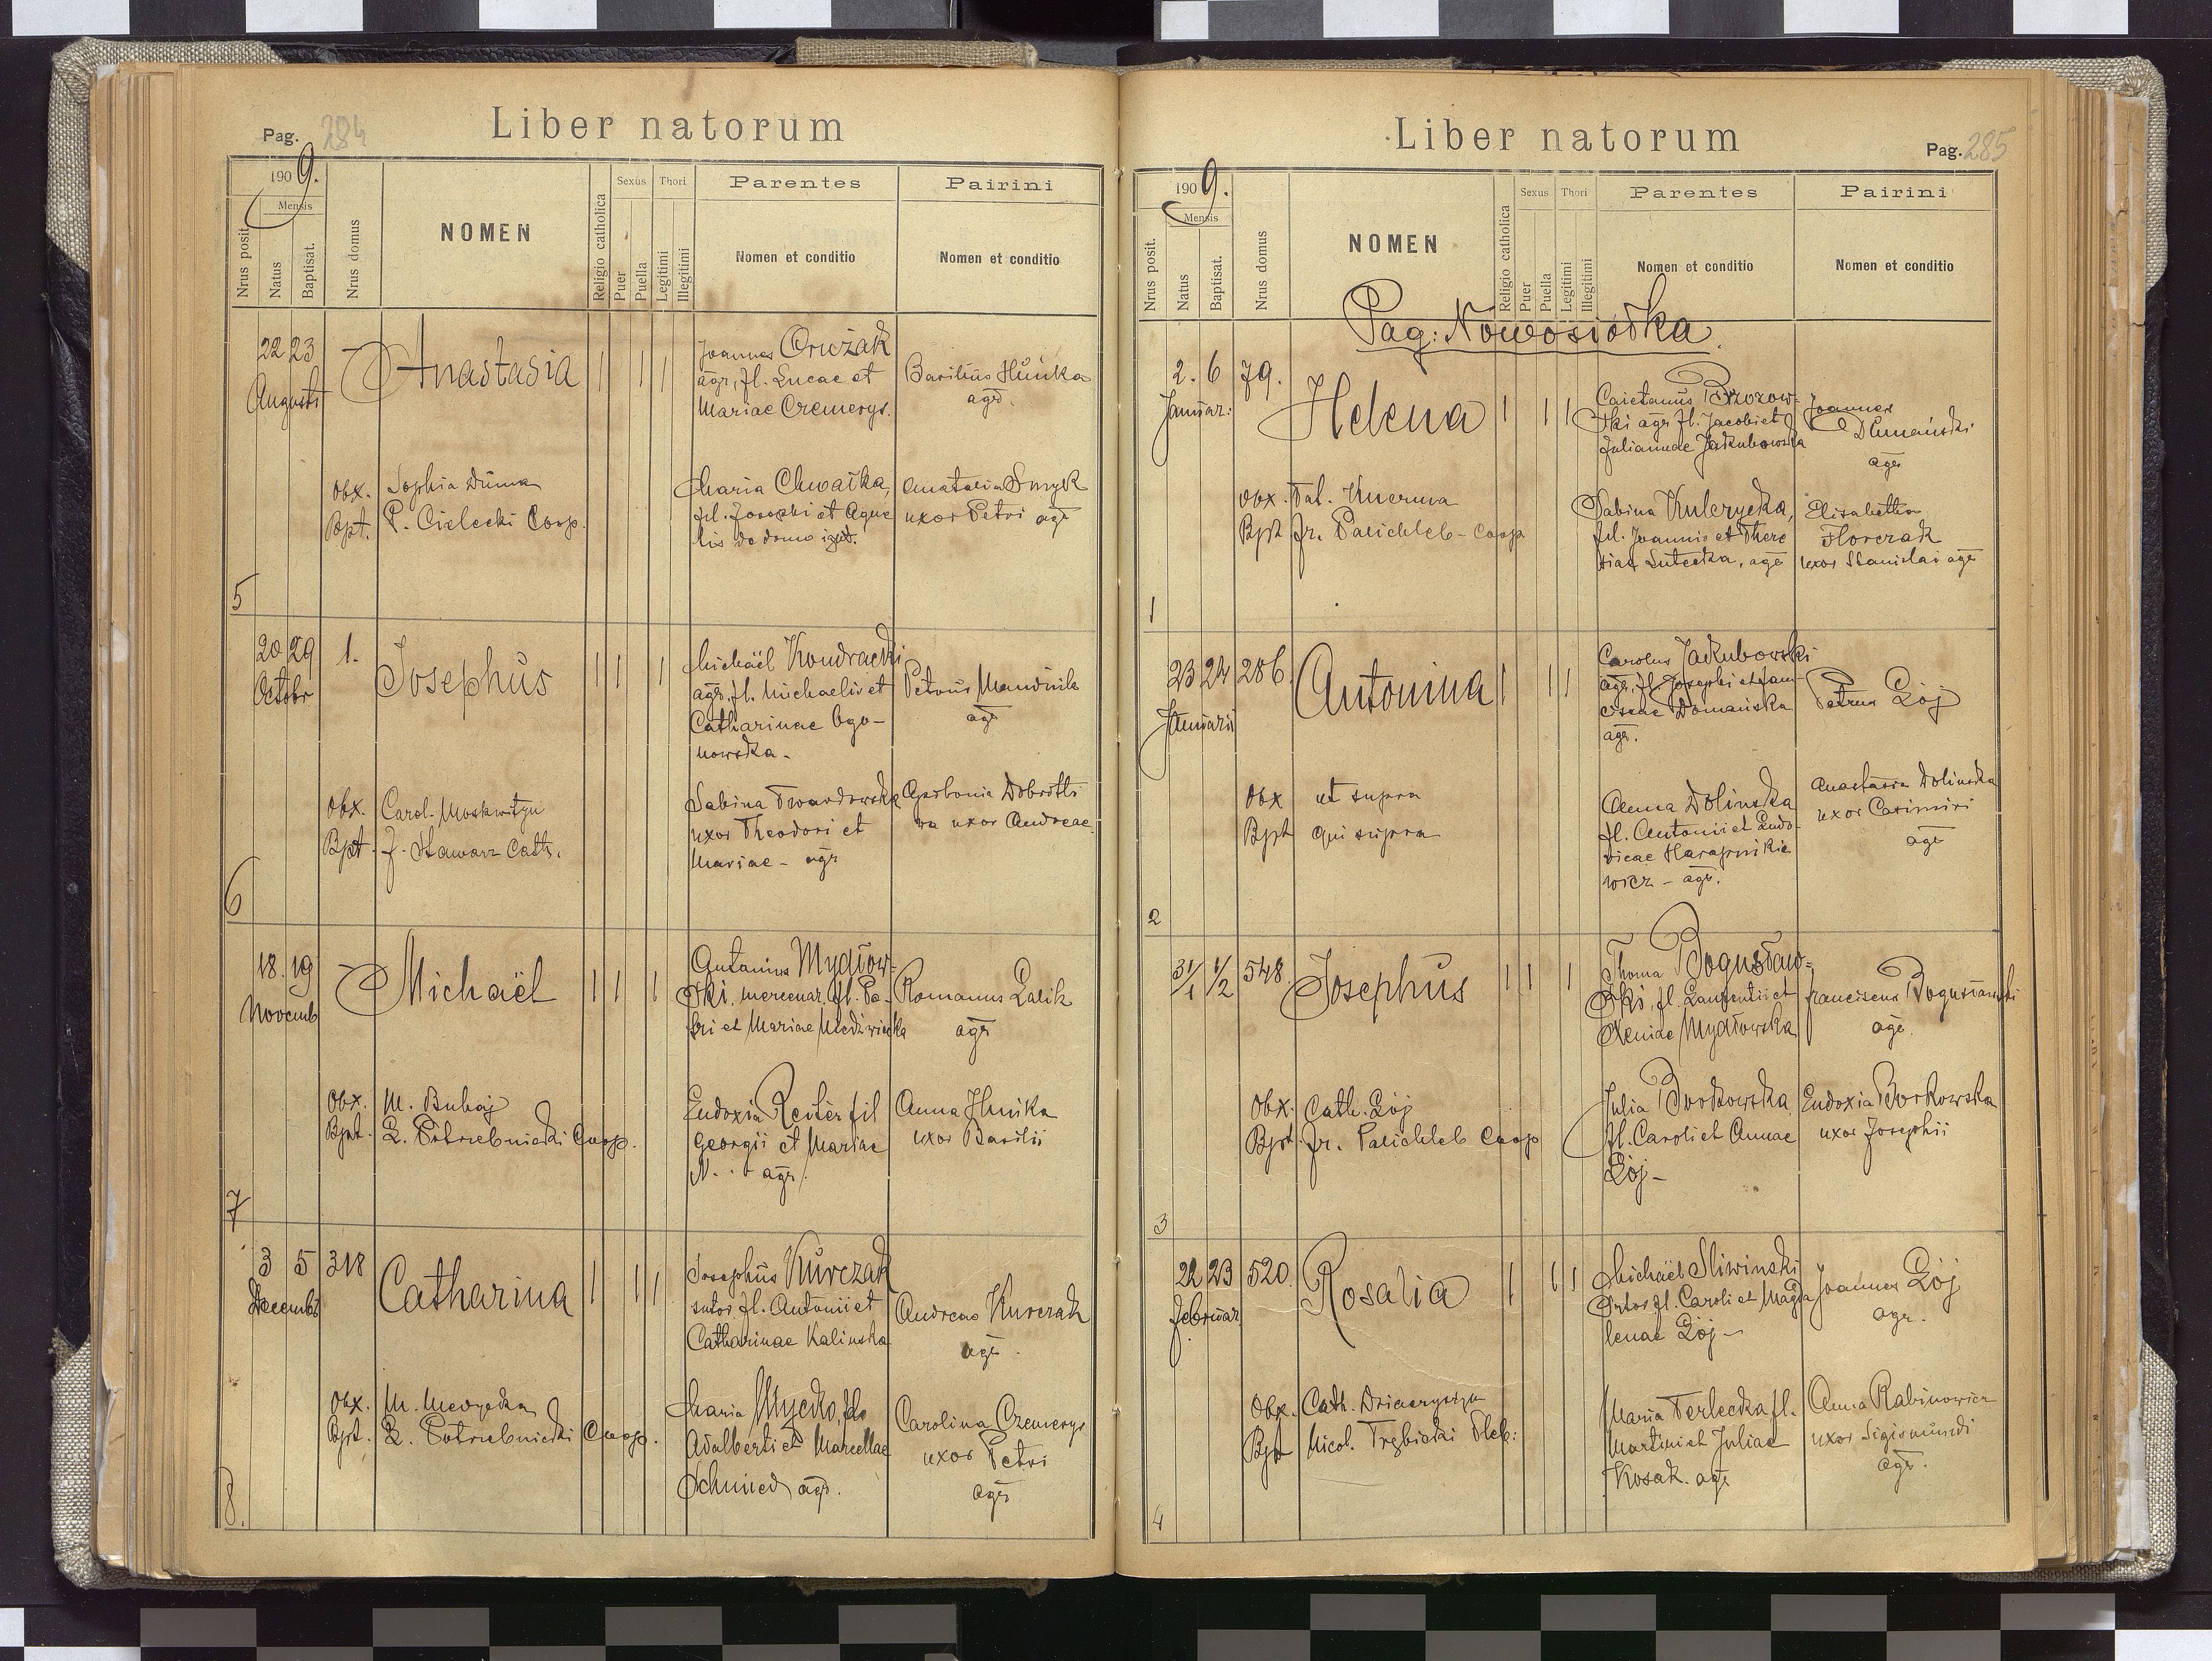 Pag. 284
Liber natorum
1909.
Mensis
Nrus posit.
Natus
Baptisat.
Nrus domus
NOMEN
Religio catholica
Sexus
Puer
Puella
Thori
Legitimi
Illegitimi
Parentes
Nomen et conditio
Pairini
Nomen et conditio
5
22 23
Augusti
Anastasia
Joannes
agr, fil. Lucae et
Mariae Czemerys.
Basilius Hunka
agr.
Obx. Sophia Duma
Bpt. P. Cielecki Coop.
Maria Chwałka,
fil. Josephi et Agne
tis de domo ignt.
Anatasia Smyk
uxor Petri agr
6
20 29
Octobr
1.
Josephus
Michaël Kondracki
agr, fl. Michaelis et
Catharinae Ogo-
nowska.
Petrus
agr
Obx. Carol. Moskwityn
Bpt. J. Stawarz Cath.
Sabina Twardowska
uxor Theodori et
Mariae - agr
Apolonia
wa uxor Andreae
7
18. 19
Novemb
Michaël
Antonius Mydłow-
ski, mercenar. fl. Pe-
tri et Mariae
Romanus Lalik
agr
Obx. M. Buhaj
Bpt. Z. Potrzebnicki Coop.
Eudoxia Reiter fil
Georgii et Mariae
N. . . agr.
Anna Hunka
uxor Basilii
8.
3 5
Decembr
318
Catharina
Josephus Kurczak
sutor, fl. Antonii et
Catharinae Kalinska
Andreas Kurczak
agr.
Obx. M.
Bpt. Z. Potrzebnicki Coop.
Maria Mycko, fl.
Adalberti et Marcellae
Schmied agr.
Carolina Czemerys
uxor Petri
agr
Liber natorum
Pag. 285
1909.
Mensis
Nrus posit.
Natus
Baptisat.
Nrus domus
NOMEN
Religio catholica
Sexus
Puer
Puella
Thori
Legitimi
Illegitimi
Parentes
Nomen et conditio
Pairini
Nomen et conditio
Pag: Nowosiołka.
1
2. 6
Januar:
79.
Helena
Caietanus Brzozow-
ski agr fl. Jacobi et
Juliannae Jakubowska
Joannes
agr
Obx. Tat.
Bpt Fr. Palichleb - Coop
Sabina Kulczycka,
fil. Joannis et There
siae Lutecka, agr
Elisabetha
Florczak
uxor Stanislai agr
2
23 24
Januarii
286.
Antonina
Carolus Jakubowski
agr, fl. Josephi et Fran-
ciscae Domańska
agr.
Petrus Łój
Obx ut supra
Bpt qui supra
Anna Dolinska
fl. Antonii et Ludo-
vicae Harapnikie
wicz - agr.
Anastasia Dolinska
uxor Casimiri
agr
3
31/1 1/2 548.
Josephus
Thoma Bogusław-
ski, fl. Laurentii et
Xeniae Mydłowska
Franciscus Bogusławski
agr.
Obx. Cath. Łój
Bpt. Fr. Palichleb Coop
Julia Borkowska
fl. Caroli et Annae
Łój -
Eudoxia Borkowska
uxor Josephii
4
22 23
Februar.
520.
Rosalia
Michaël Sliwinski
fl. Caroli et Magda
lenae Łój -
Joannes Łój
agr.
Obx. Cath.
Bpt Nicol. Trębicki Pleb:
Maria Terlecka fl.
Martini et Juliae
Kosak. agr
Anna Rabinowicz
uxor Sigismundi
agr.